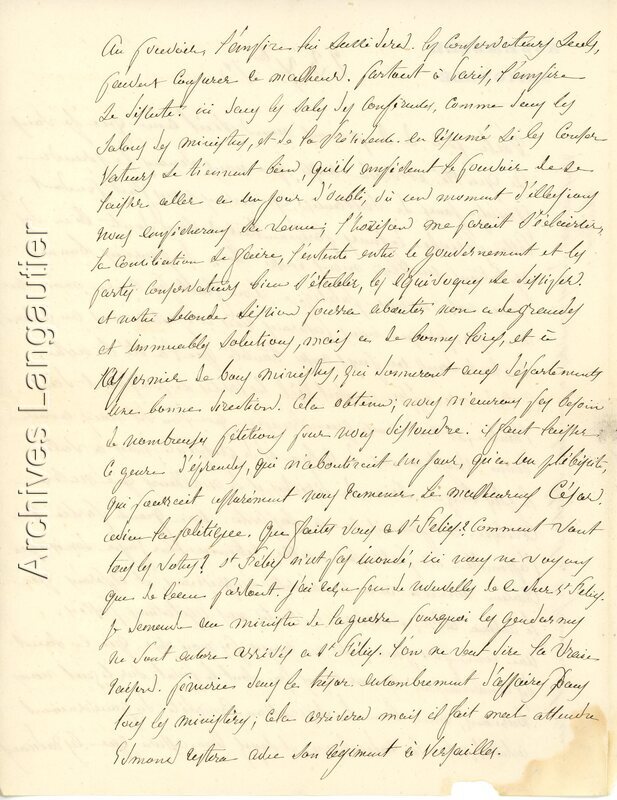 au pouvoir, l'empire lui succèdera. les conservateurs seuls,
peuvent conjurer ce malheur. partout à Paris, l'empire
se discute: ici dans les salles des conférences, comme dans les
salons des ministres, et de la Présidente. en résumé si les conser
vateurs se tiennent bien, qu'ils empêchent le pouvoir de se
laisser aller en un jour d'oubli, où un moment d'illusions
nous empêcherons sa venue; l'horizon me parait s'éclaircir,
la conciliation se faire, l'entente entre le gouvernement et les
partis conservateurs bien s'établir, les équivoques se dissiper.
et notre seconde session pourra aboutir non a de grandes
et immuables solutions, mais a de bonnes lois, et à
raffermir de bons ministres, qui donneront aux départements
une bonne direction. Cela obtenu; nous n'aurons pas besoin
de nombreuses pétitions pour nous dissoudre. il faut laisser
ce genre d'épreuves, qui n'aboutirait un jour, qu'a un plébiscite,
qui pourrait assurément nous ramener le malheureux César.
adieu la politique. Que faites vous a St Felix? Comment vont
tous les votres? St Félix n'est pas inondé, ici nous ne voyons
que de l'eau partout. j'ai reçu peu de nouvelles de ce cher St Felix.
je demande au ministre de la guerre pourquoi les gendarmes
ne sont encore arrivés a St Félix. l'on ne veut dire la vraie
raison. penurie dans le trésor encombrement d'affaires dans
tous les ministères; cela arrivera mais il faut attendre
Edmond restera avec son régiment à Versailles.
Archives Langautier